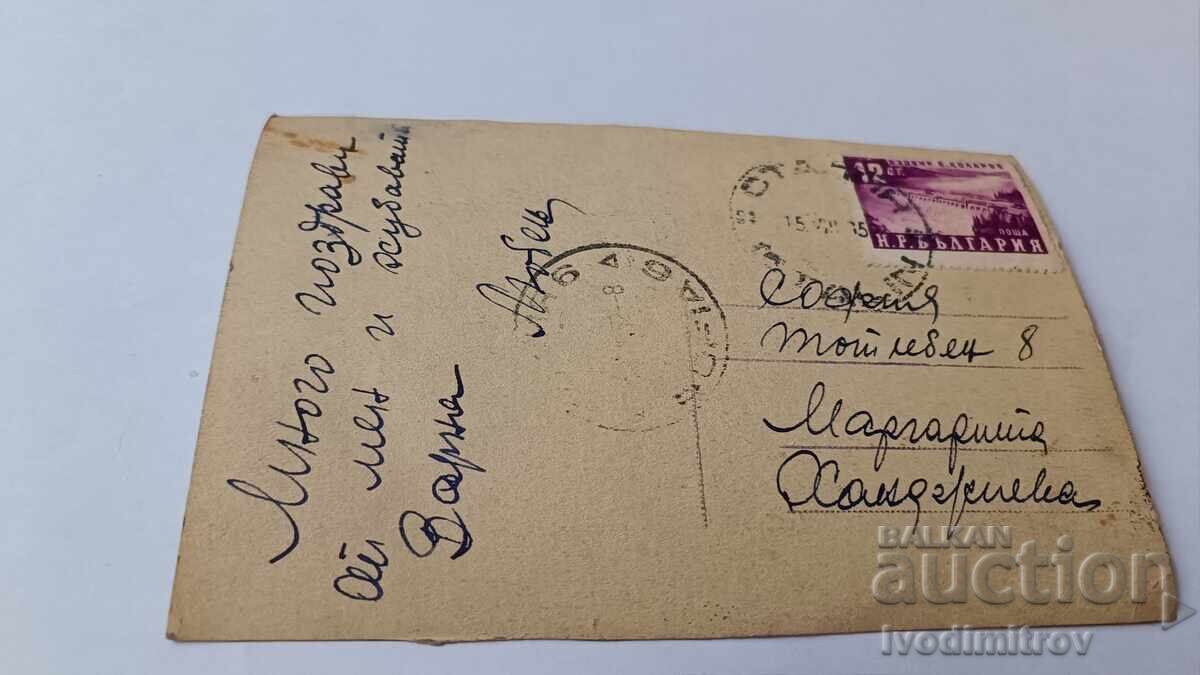 Много поздрави
от мен и хубавата
Варна
Любен
12 СТ.
ПОЩА
Н.Р. БЪЛГАРИЯ
СОФИЯ
София
Тотлебен 8
Маргарита
Ханджиева
BALKAN
auction
ivodimitrov